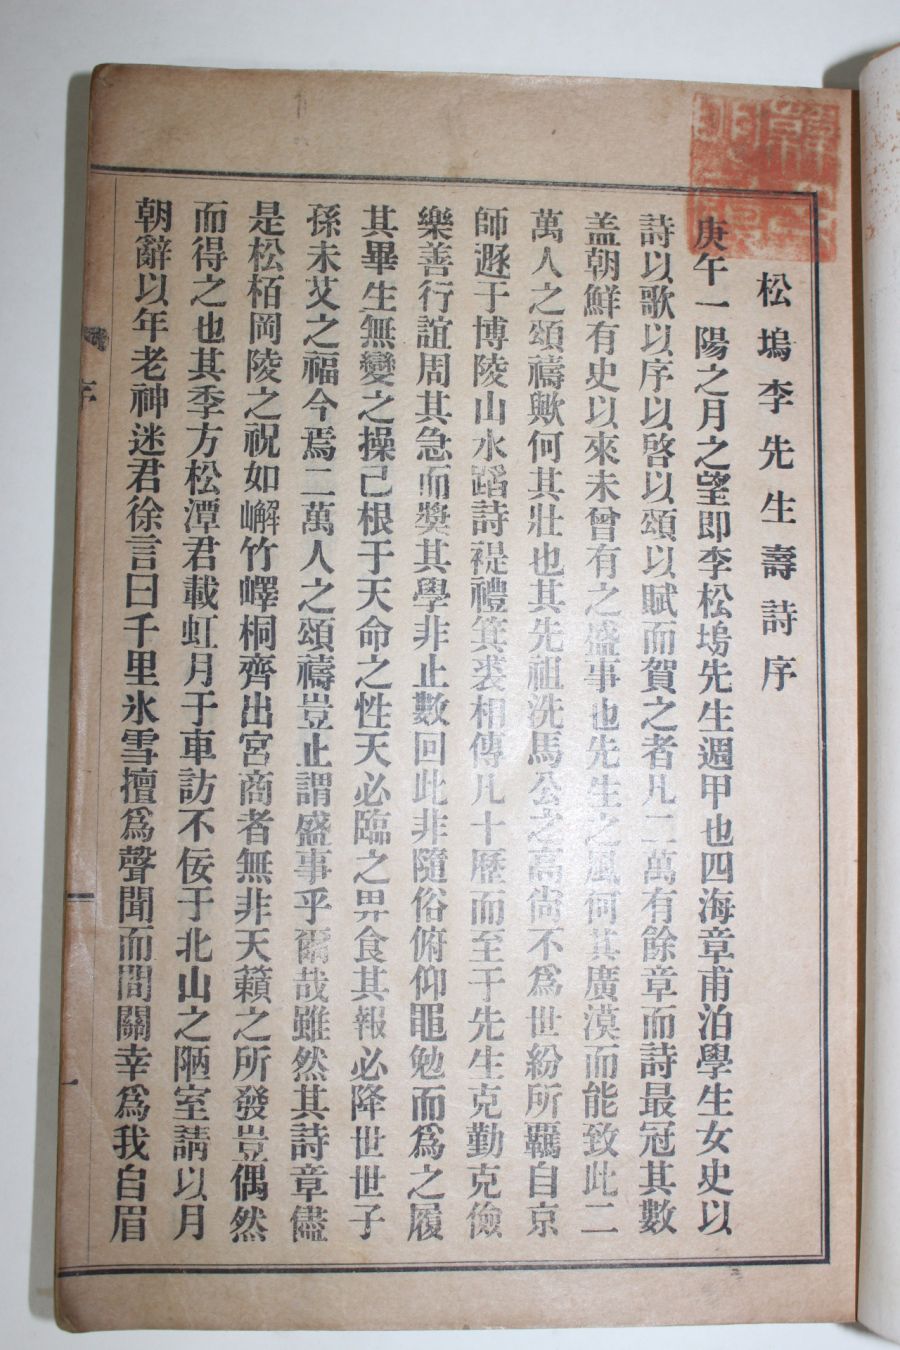 松塢李先生壽詩序
庚午一陽之月之望即李松塢先生週甲也四海章甫洎學生女史以
詩以歌以序以啓以頌以賦而賀之者凡二萬有餘章而詩最冠其數
盖朝鮮有史以來未曾有之盛事也先生之風何其廣漠而能致此二
萬人之頌禱歟何其壯也其先祖洗馬公之高尙不爲世紛所羈自京
師遯于博陵山水蹈詩禔禮箕裘相傳凡十歷而至于先生克勤克儉
樂善行誼周其急而奬其學非止數回此非隨俗俯仰黽勉而爲之履
其畢生無變之操己根于天命之性天必臨之畀食其報必降世世子
孫未艾之福今焉二萬人之頌禱豈止謂盛事乎爾哉雖然其詩章儘
是松栢岡陵之祝如嶰竹嶧桐齊出宮商者無非天籟之所發豈偶然
而得之也其季方松潭君載虹月于車訪不佞于北山之陋室請以月
朝辭以年老神迷君徐言曰千里氷雪擅爲聲聞而間關幸爲我台眉
序
一